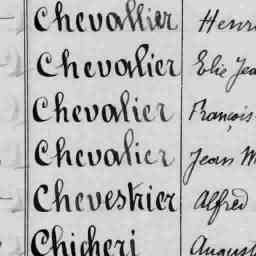 Chevallier Henri
Chevalier Elie Jea
Chevalier François
Chevalier Jean M
Chevestrier Alfred
Chicheri August